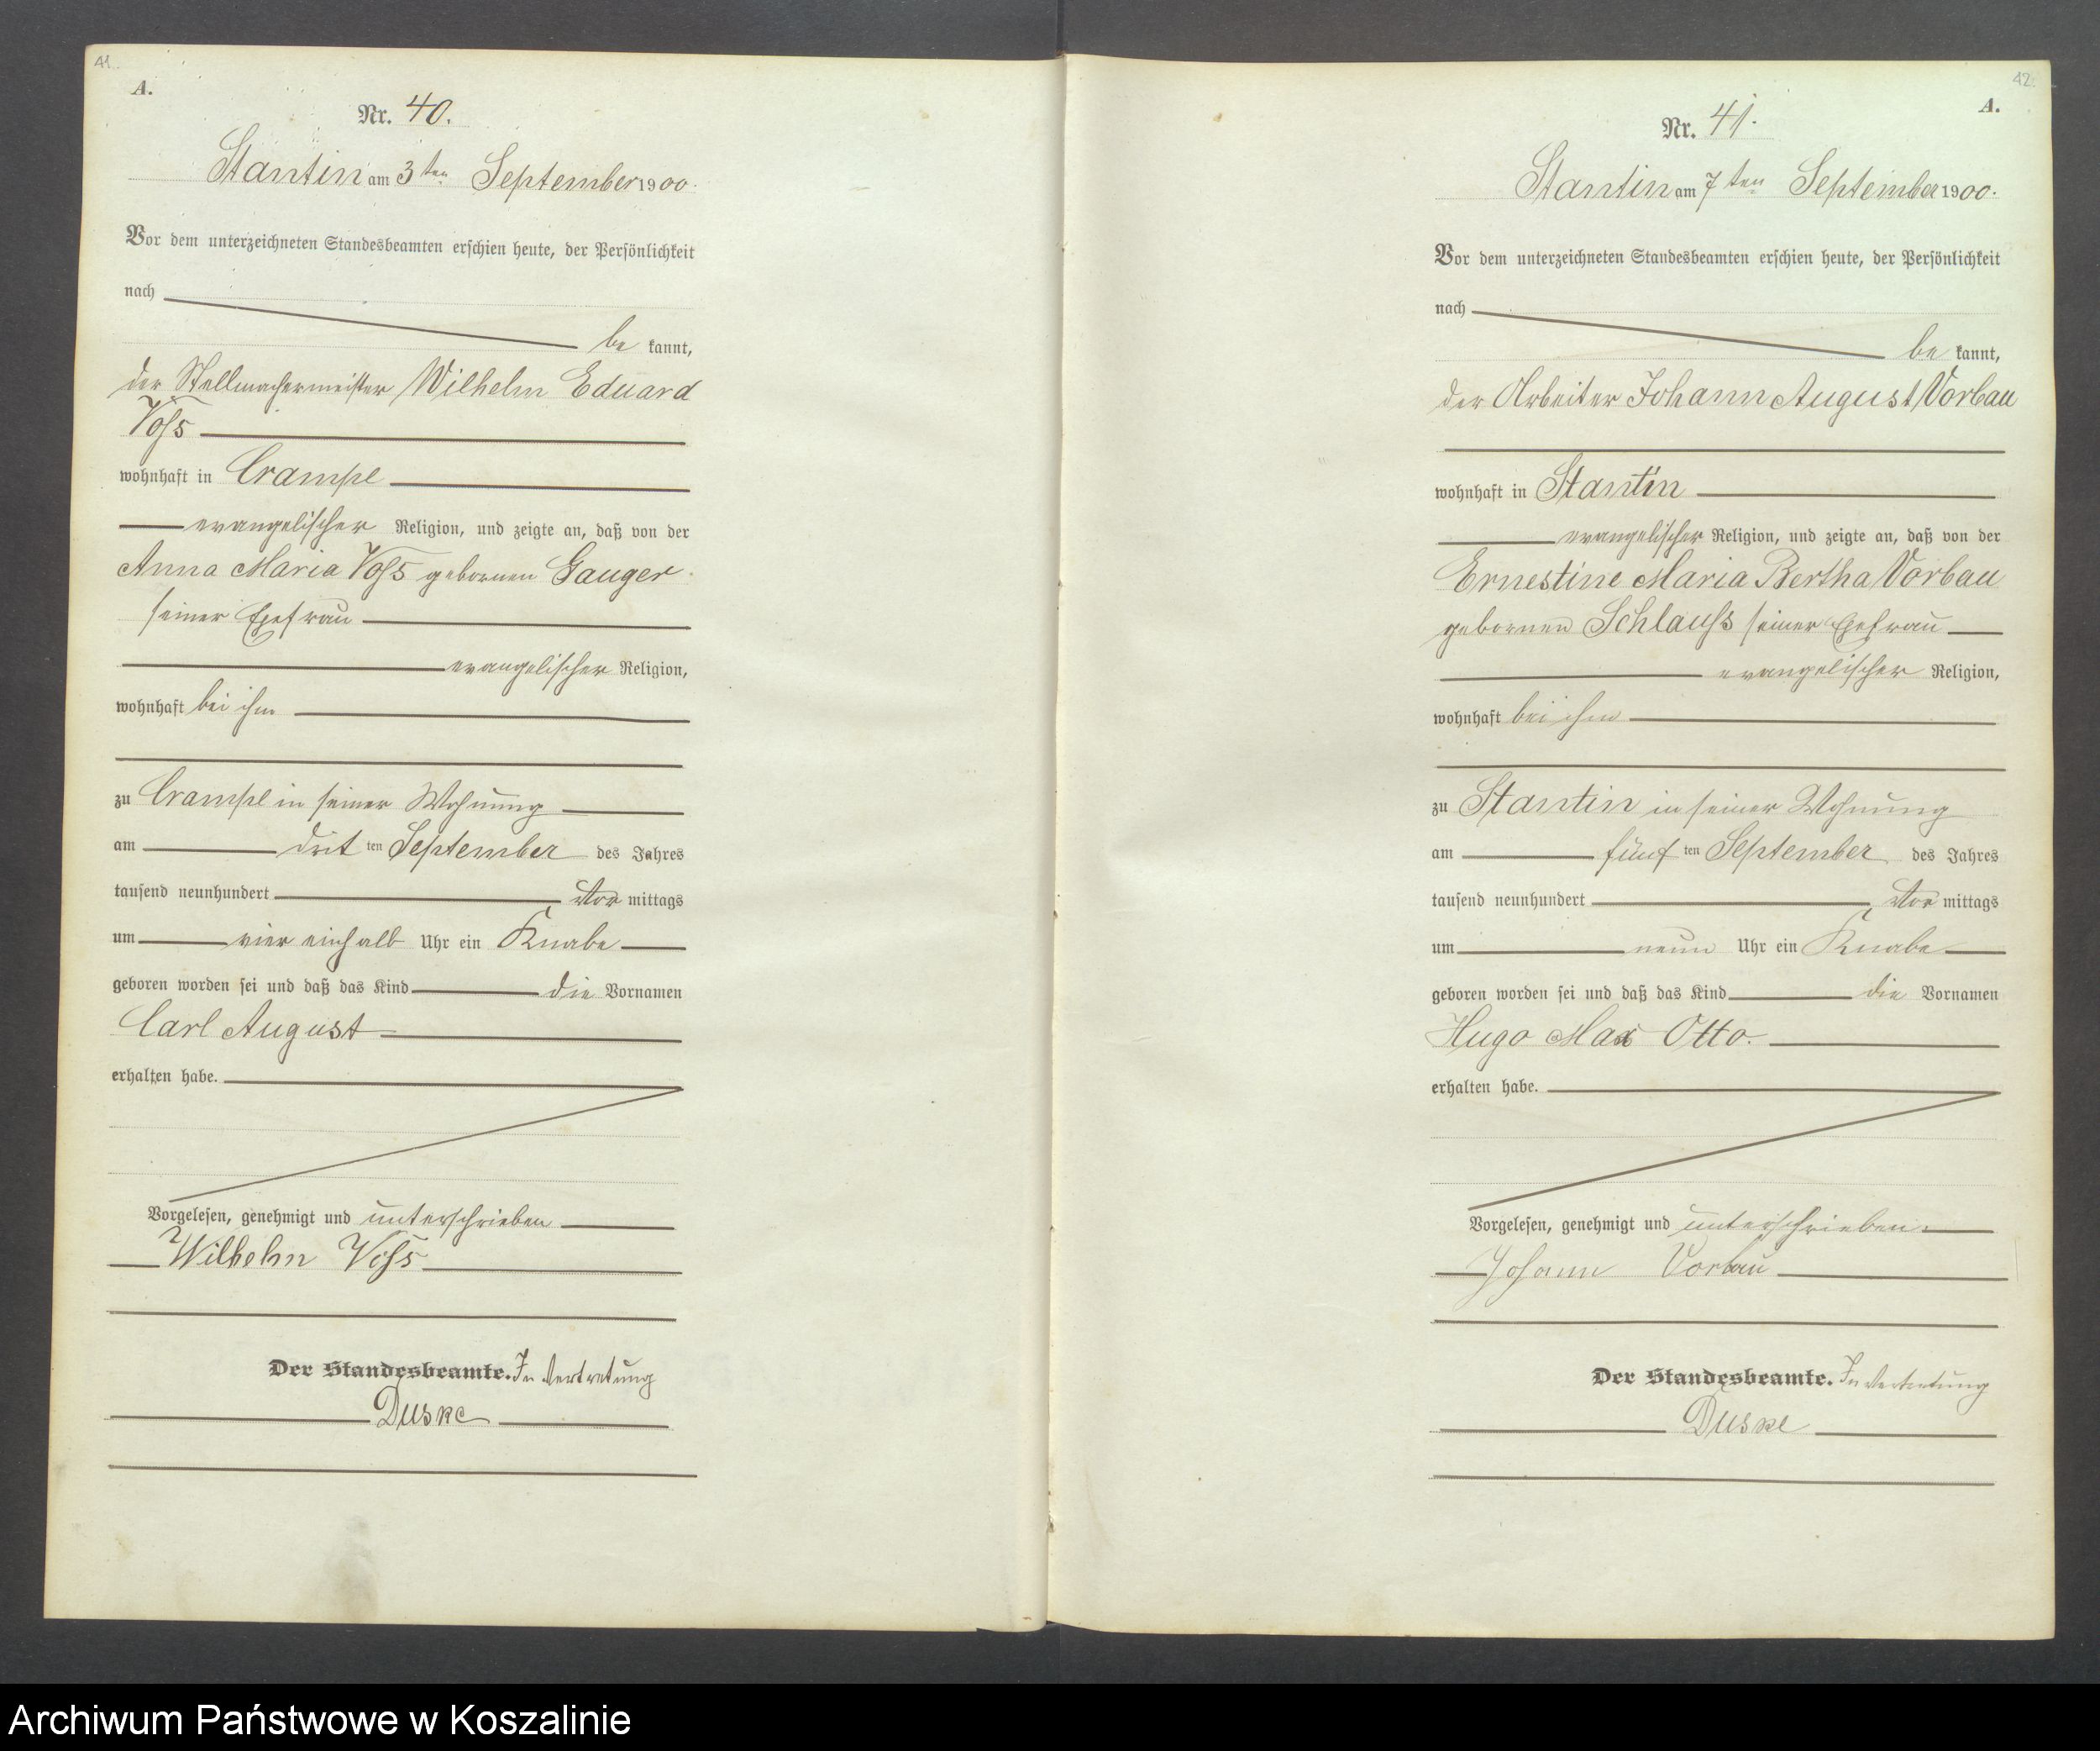 41.
A.
Nr. 40.
Stantin am 3ten September 1900.
Vor dem unterzeichneten Standesbeamten erschien heute, der Persönlichkeit
nach
be kannt,
der Stellmachermeister Wilhelm Eduard
Voß
wohnhaft in Crampe
evangelischer Religion, und zeigte an, daß von der
Anna Maria Voß gebornen Gauger
seiner Ehefrau
evangelischer Religion,
wohnhaft bei ihm
zu Crampe in seiner Wohnung
am drit ten September des Jahres
tausend neunhundert Vor mittags
um vier einhalb Uhr ein Knabe
geboren worden sei und daß das Kind die Vornamen
Carl August
erhalten habe.
Vorgelesen, genehmigt und unterschrieben
Wilhelm Voß
Der Standesbeamte. In Vertretung
Duske
42.
A.
Nr. 41.
Stantin am 7ten September 1900.
Vor dem unterzeichneten Standesbeamten erschien heute, der Persönlichkeit
nach
be kannt,
der Arbeiter Johann August Vorbau
wohnhaft in Stantin
evangelischer Religion, und zeigte an, daß von der
Ernestine Maria Bertha Vorbau
gebornen Schlauß seiner Ehefrau
evangelischer Religion,
wohnhaft bei ihm
zu Stantin in seiner Wohnung
am fünf ten September des Jahres
tausend neunhundert Vor mittags
um neun Uhr ein Knabe
geboren worden sei und daß das Kind die Vornamen
Hugo Max Otto.
erhalten habe.
Vorgelesen, genehmigt und unterschrieben
Johann Vorbau
Der Standesbeamte. In Vertretung
Duske
Archiwum Państwowe w Koszalinie